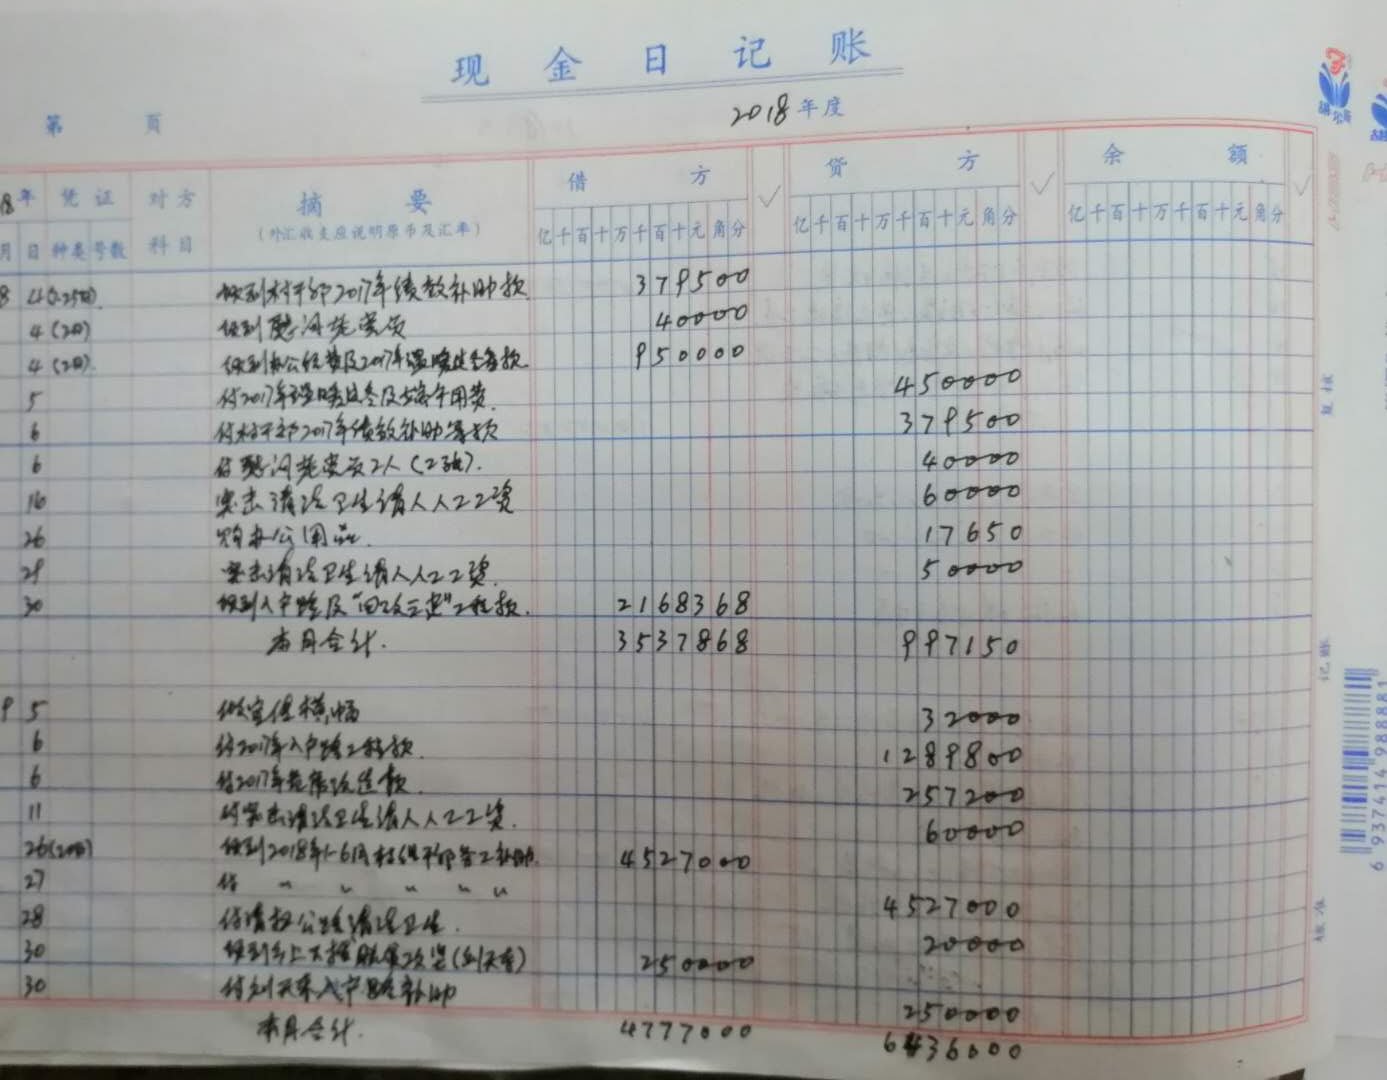 现金日记账
2018年度
第 页
18年 凭证 对方 摘要 借方 ✓ 贷方 ✓ 余额 ✓
月 日 种类 号数 科目 (外汇收支应说明原币及汇率) 亿千百十万千百十元角分 亿千百十万千百十元角分 亿千百十万千百十元角分
8 4(25日) 领到村干部2017年绩效补助款 379500
4(2日) 领到慰问党员 40000
4(2日) 领到办公经费及2017年温暖过冬等款 950000
5 付2017年温暖过冬及端午用费 450000
6 付村干部2017年绩效补助等款 379500
6 付慰问党员2人(2张). 40000
16 突击清洁卫生请人人工工资 60000
26 购办公用品. 17650
29 突击清洁卫生请人人工工资. 50000
30 领到入户路及"四改三建"工程款. 2168368
本月合计. 3537868 997150
9 5 做宣传横幅 32000
6 付2017年入户路工程款. 1289800
6 付2017年危房改造款. 257200
11 付突击清洁卫生请人人工工资. 60000
26(20日) 领到2018年1-6月村组干部误工补助. 4527000
27 付 〃 〃 〃 〃 〃 4527000
28 付清扫公路清洁卫生. 20000
30 250000
30 付刘天孝入户路补助 250000
本月合计. 4777000 6436000
复核
记账
核准
6 937414 988881